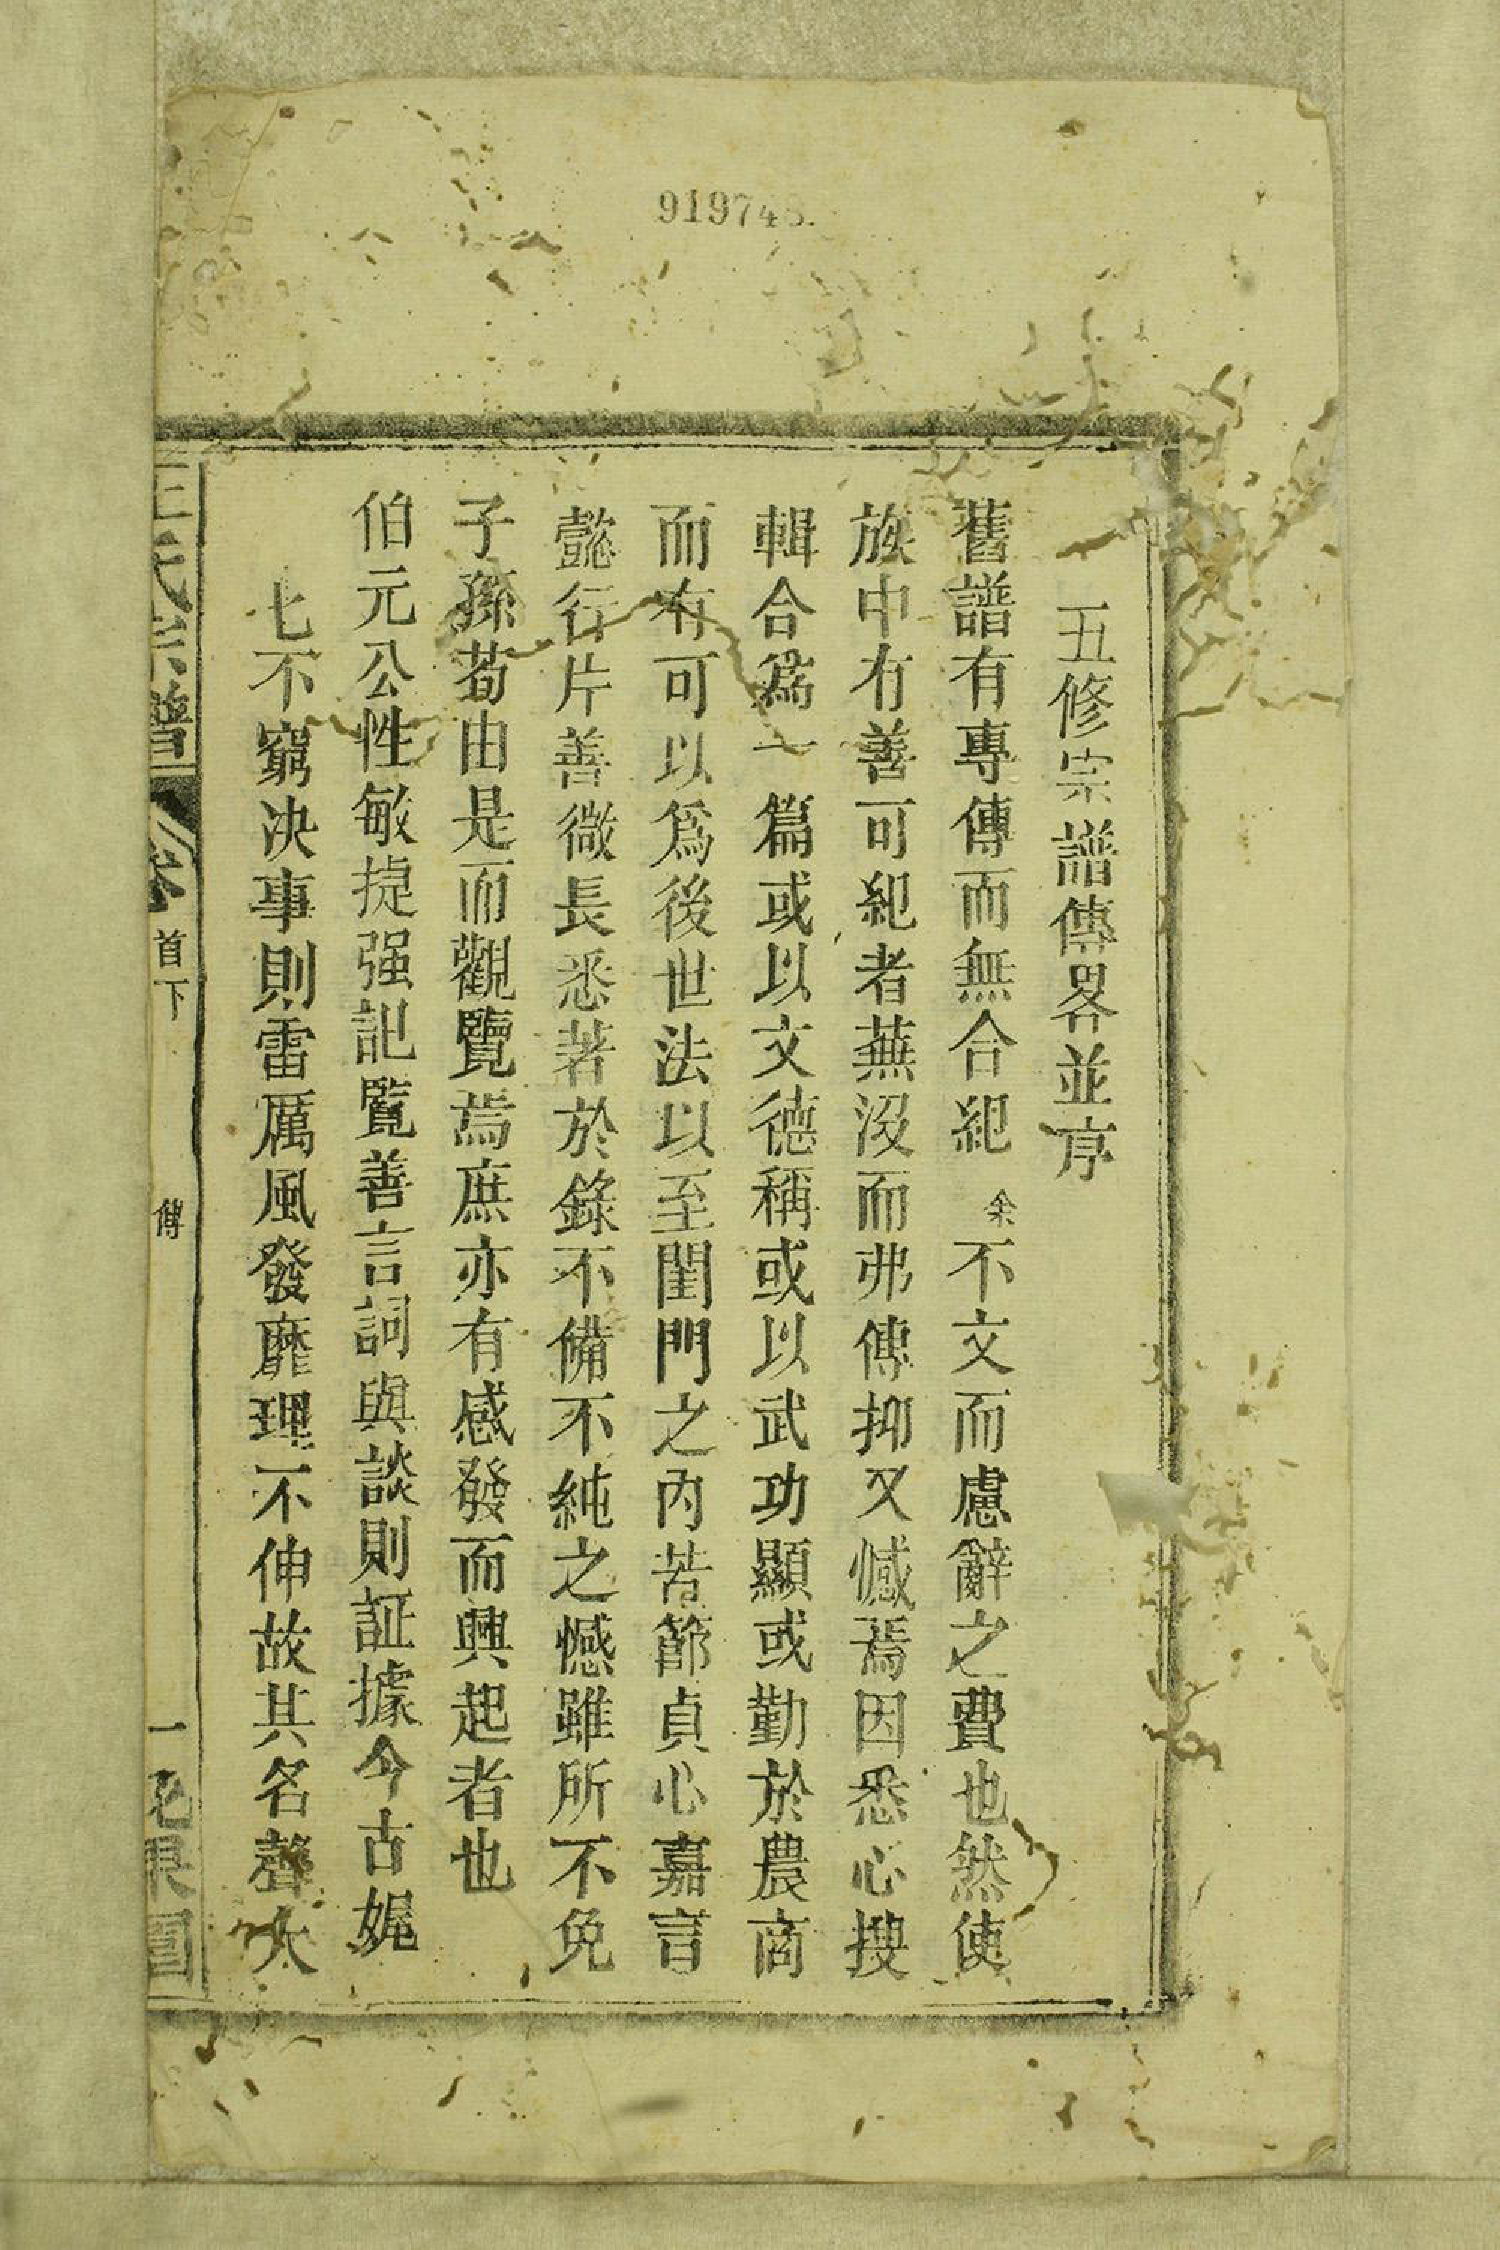 五修宗譜傳畧並序
舊譜有專傳而無合紀余不文而慮辭之費也然使
族中有善可紀者蕪沒而弗傳抑又憾焉因悉心搜
輯合爲一篇或以文德稱或以武功顯或勤於農商
而有可以爲後世法以至閨門之內苦節貞心嘉言
懿行片善微長悉著於錄不備不純之憾雖所不免
子孫苟由是而觀覽焉庶亦有感發而興起者也
伯元公性敏捷强記覽善言詞與談則証據今古娓
七不窮決事則雷厲風發靡理不伸故其名聲大
王氏宗譜
卷首下
傳
一
919748.